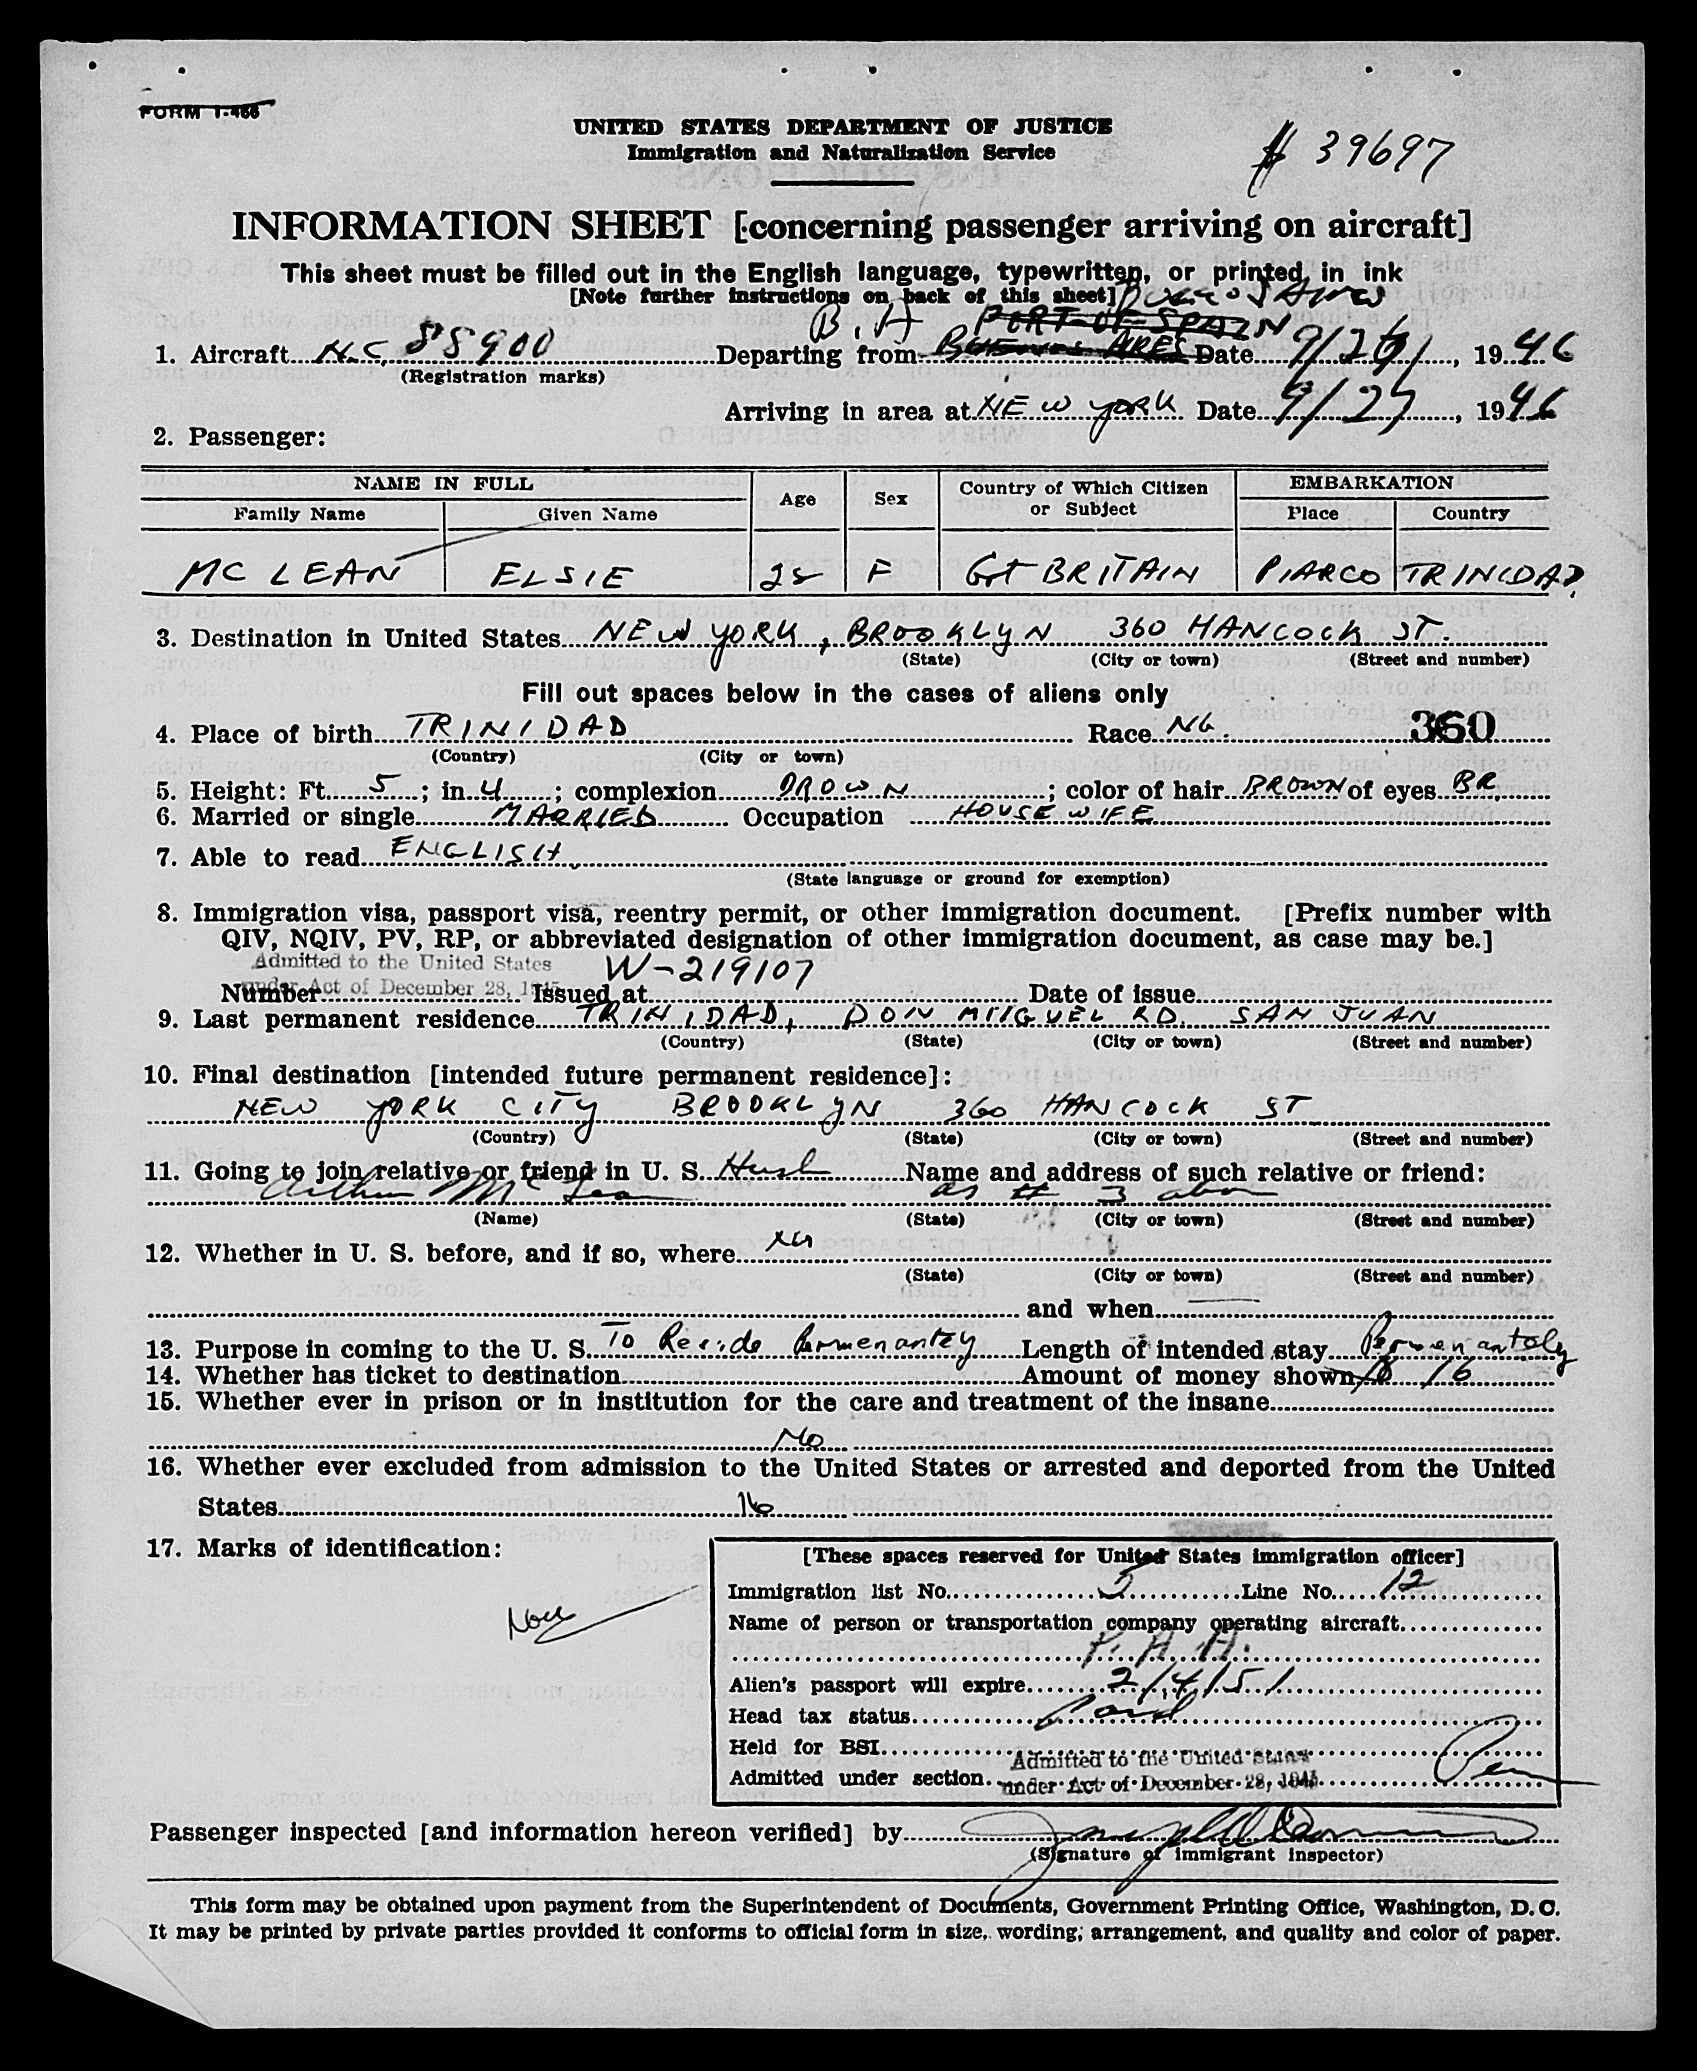 FORM I-466
UNITED STATES DEPARTMENT OF JUSTICE
Immigration and Naturalization Service
# 39697
INFORMATION SHEET [concerning passenger arriving on aircraft]
This sheet must be filled out in the English language, typewritten, or printed, in ink
[Note further instructions on back of this sheet] Buenos Aires
B. A PORT-OF-SPAIN
1. Aircraft N.C. 88900 Departing from BUENOS AIRES Date 9/26/, 1946
(Registration marks)
Arriving in area at NEW YORK Date 9/27, 1946
2. Passenger:
NAME IN FULL Age Sex Country of Which Citizen or Subject EMBARKATION
Family Name Given Name Place Country
MC LEAN ELSIE F Gt BRITAIN PIARCO TRINIDAD.
3. Destination in United States NEW YORK, BROOKLYN 360 HANCOCK ST.
(State) (City or town) (Street and number)
Fill out spaces below in the cases of aliens only
4. Place of birth TRINIDAD Race NG. 360
(Country) (City or town)
5. Height: Ft. 5; in. 4; complexion BROWN; color of hair BROWN of eyes BR.
6. Married or single MARRIED Occupation HOUSEWIFE
7. Able to read ENGLISH.
(State language or ground for exemption)
8. Immigration visa, passport visa, reentry permit, or other immigration document. [Prefix number with
QIV, NQIV, PV, RP, or abbreviated designation of other immigration document, as case may be.]
Admitted to the United States W-219107
under Act of December 28, 1945
Number Issued at Date of issue
9. Last permanent residence TRINIDAD, DON MIIGUEL RD. SAN JUAN
(Country) (State) (City or town) (Street and number)
10. Final destination [intended future permanent residence]:
NEW YORK CITY BROOKLYN 360 HANCOCK ST
(Country) (State) (City or town) (Street and number)
11. Going to join relative or friend in U. S. Husb Name and address of such relative or friend:
Arthur Mc Lean as # 3 above
(Name) (State) (City or town) (Street and number)
12. Whether in U. S. before, and if so, where
(State) (City or town) (Street and number)
and when
13. Purpose in coming to the U. S. To Reside Permenantley Length of intended stay Permenantely
14. Whether has ticket to destination Amount of money shown $ 16
15. Whether ever in prison or in institution for the care and treatment of the insane
No
16. Whether ever excluded from admission to the United States or arrested and deported from the United
States No
17. Marks of identification:
None
[These spaces reserved for United States immigration officer]
Immigration list No. Line No. 12
Name of person or transportation company operating aircraft
P. A. A.
Alien's passport will expire 2/4/51
Head tax status
Held for BSI
Admitted to the United States
Admitted under section under Act of December 28, 1945
Passenger inspected [and information hereon verified] by
(Signature of immigrant inspector)
This form may be obtained upon payment from the Superintendent of Documents, Government Printing Office, Washington, D. C.
It may be printed by private parties provided it conforms to official form in size, wording, arrangement, and quality and color of paper.